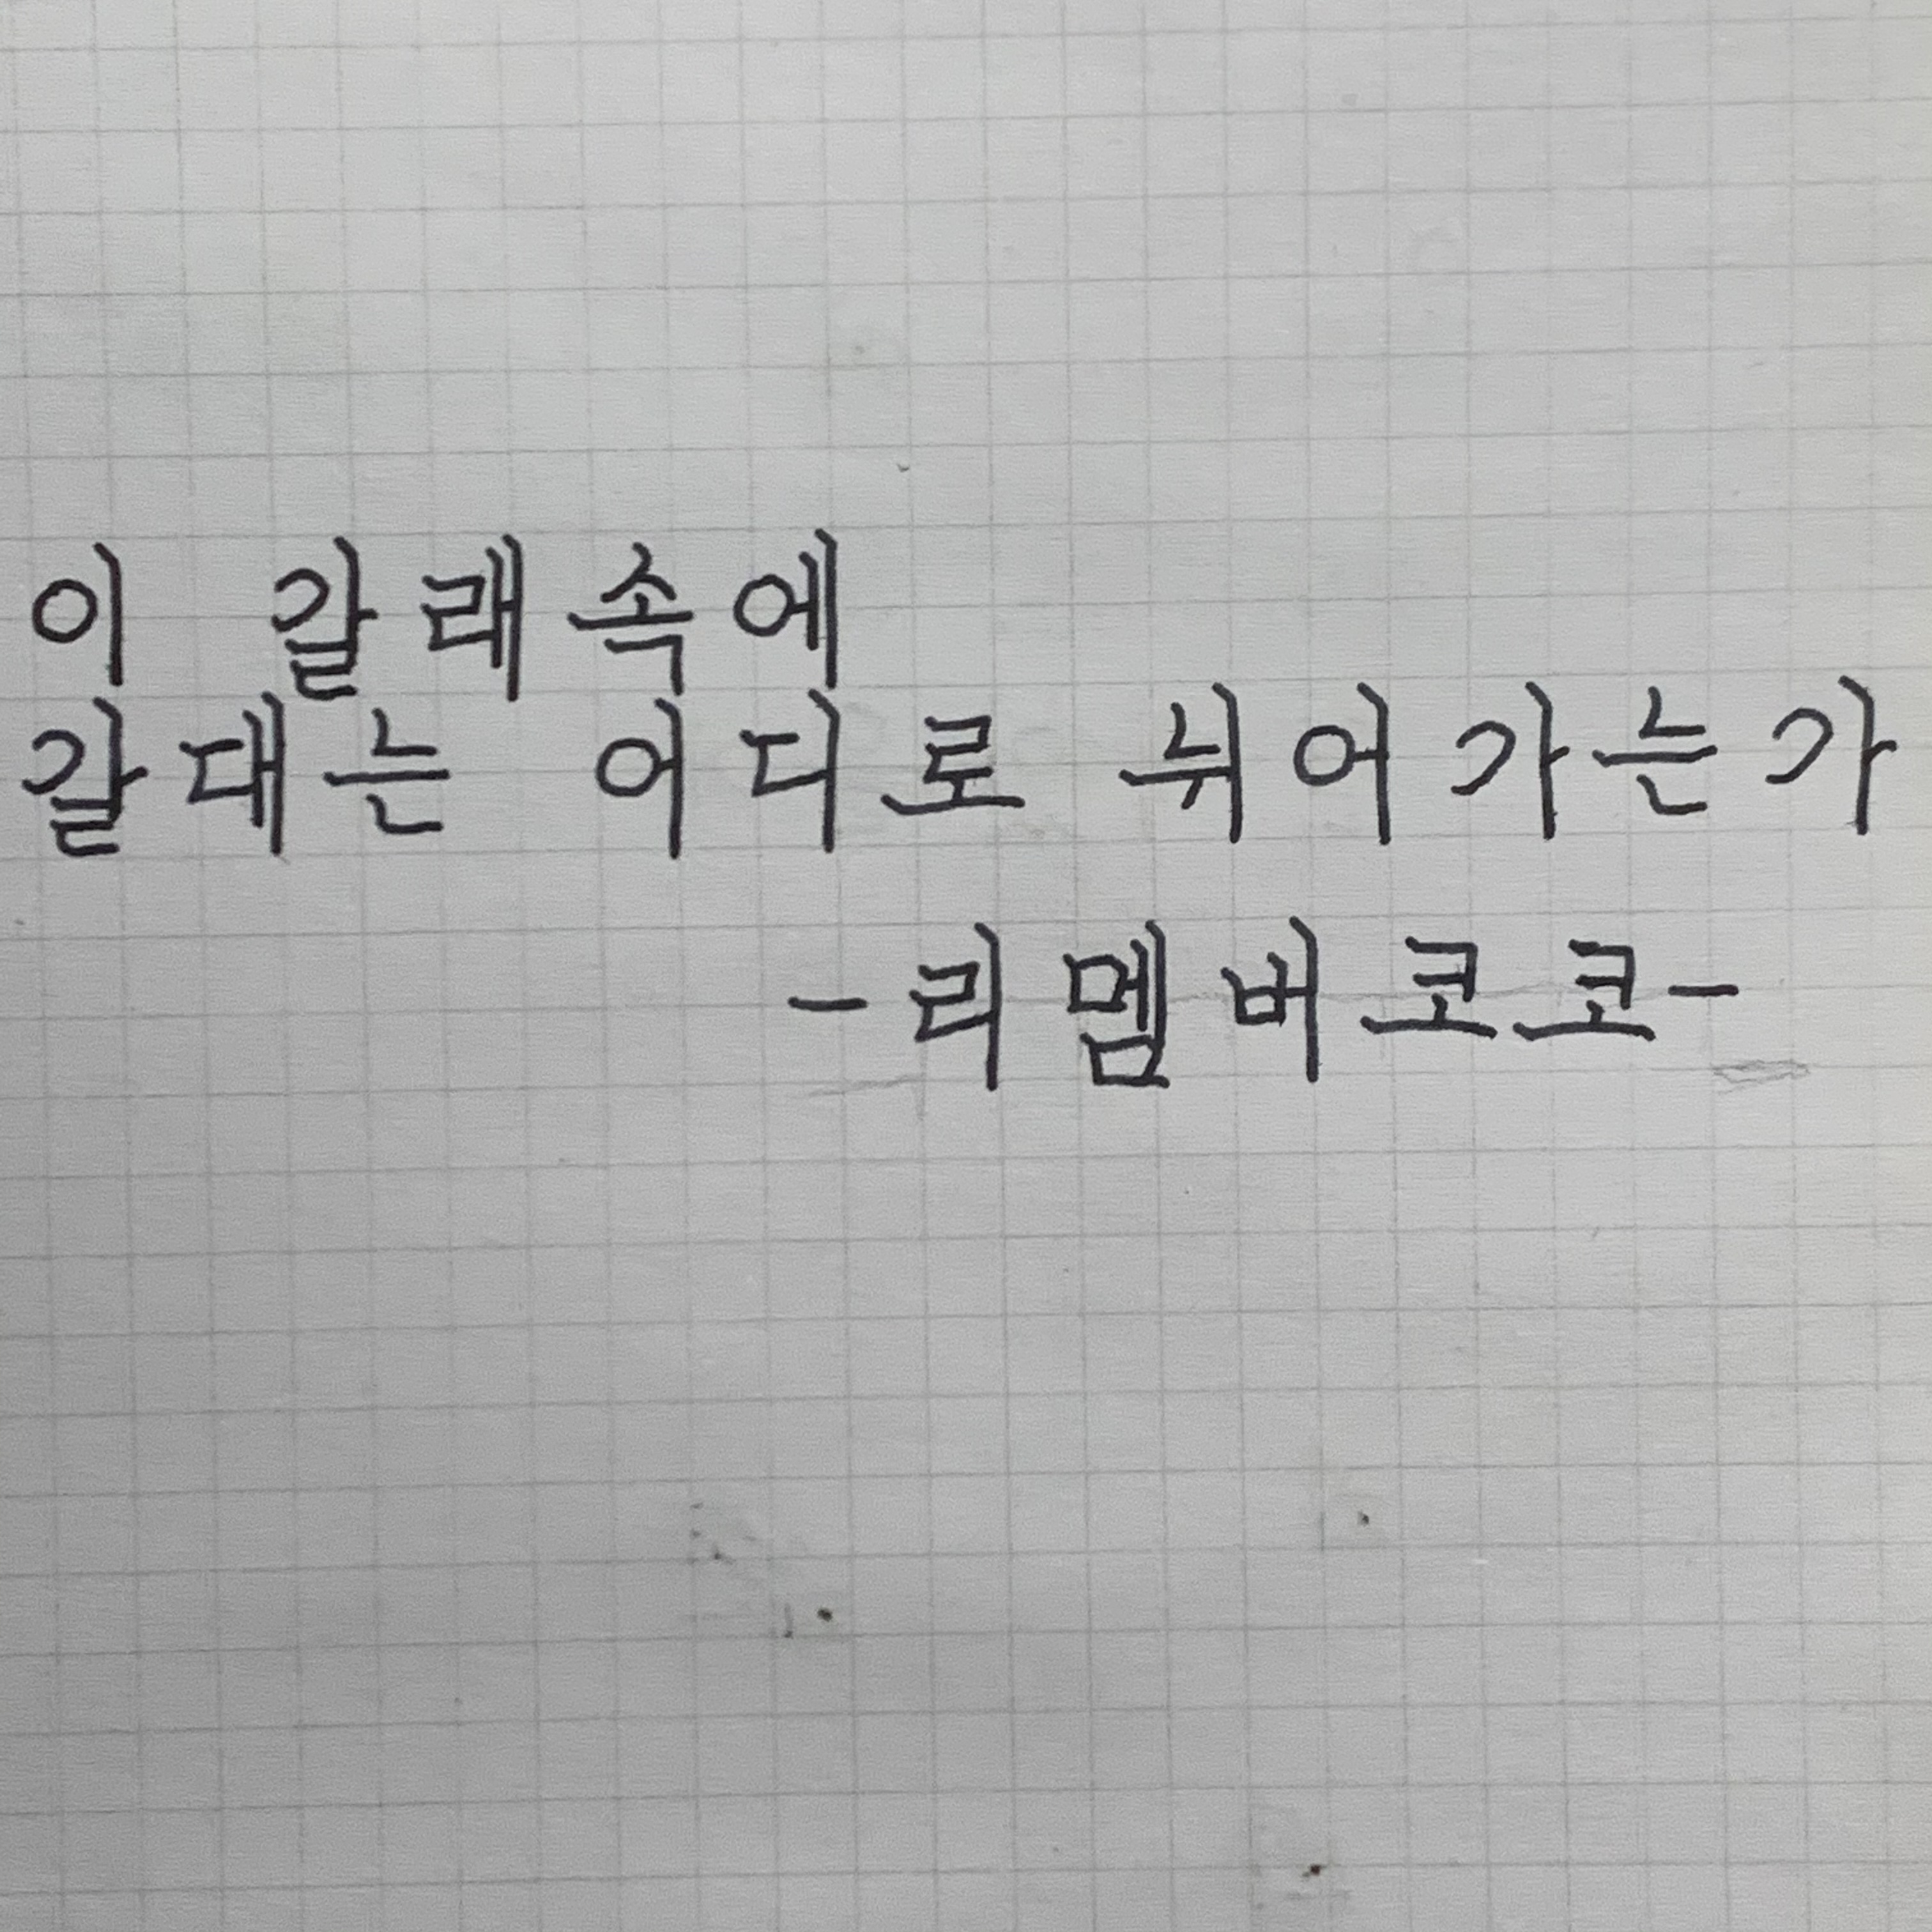 이 갈래속에
갈대는 어디로 뉘어가는가
-리멤버코코-